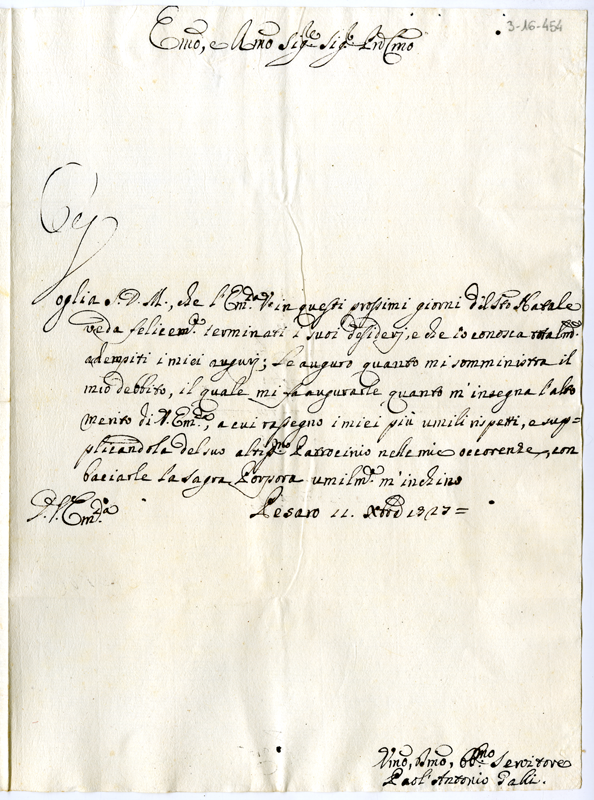 3-16-454
Emo, e Rmo Sig.re Sig.re Pron Cmo
Voglia S. D. M., che l'Em.za V.ra in questi prossimi giorni del S.to Natale
veda felicem.te terminati i suoi desiderj, e che io conosca totalm.te
adempiti i miei augurj; Le auguro quanto mi somministra il
mio debbito, il quale mi fa augurarle quanto m'insegna l'alto
merito di V. Em.za, a cui rassegno i miei più umili rispetti, e sup=
plicandola del suo altis.mo Patrocinio nele mie occorenze, con
baciarle la Sagra Porpora umilm.te m'inchino
D. V. Em.za Pesaro 11. Xbre 1727=
Vmo, Dmo, Obb.mo Servitore
Paol' Antonio Galli.